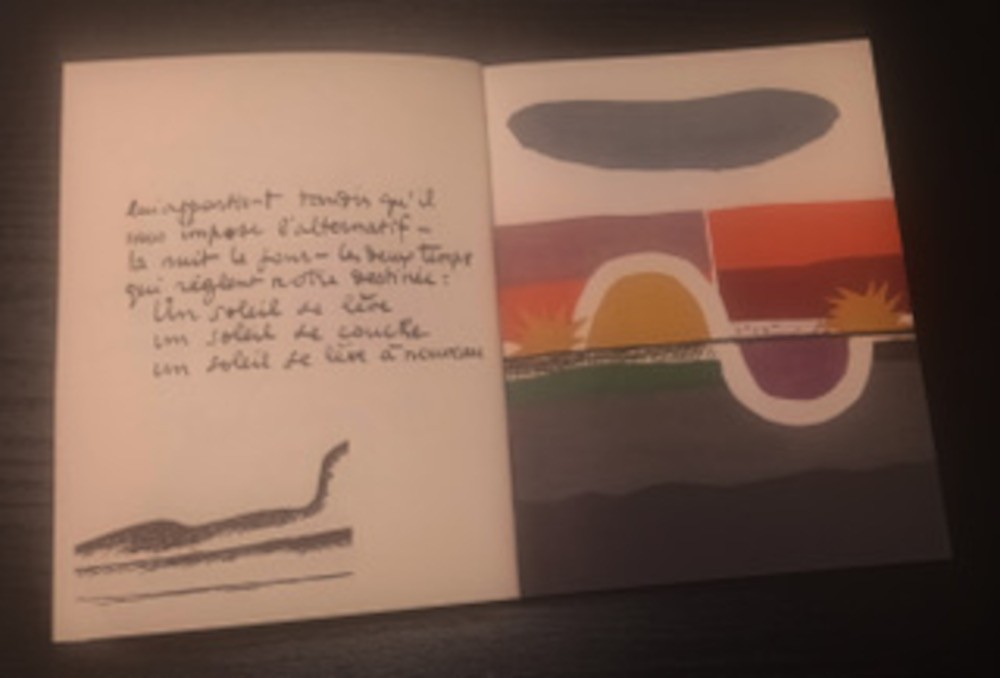 lui appartient tandis qu'il
nous impose l'alternatif -
la nuit le jour - les deux temps
qui règlent notre destinée :
Un soleil se lève
un soleil se couche
un soleil se lève à nouveau